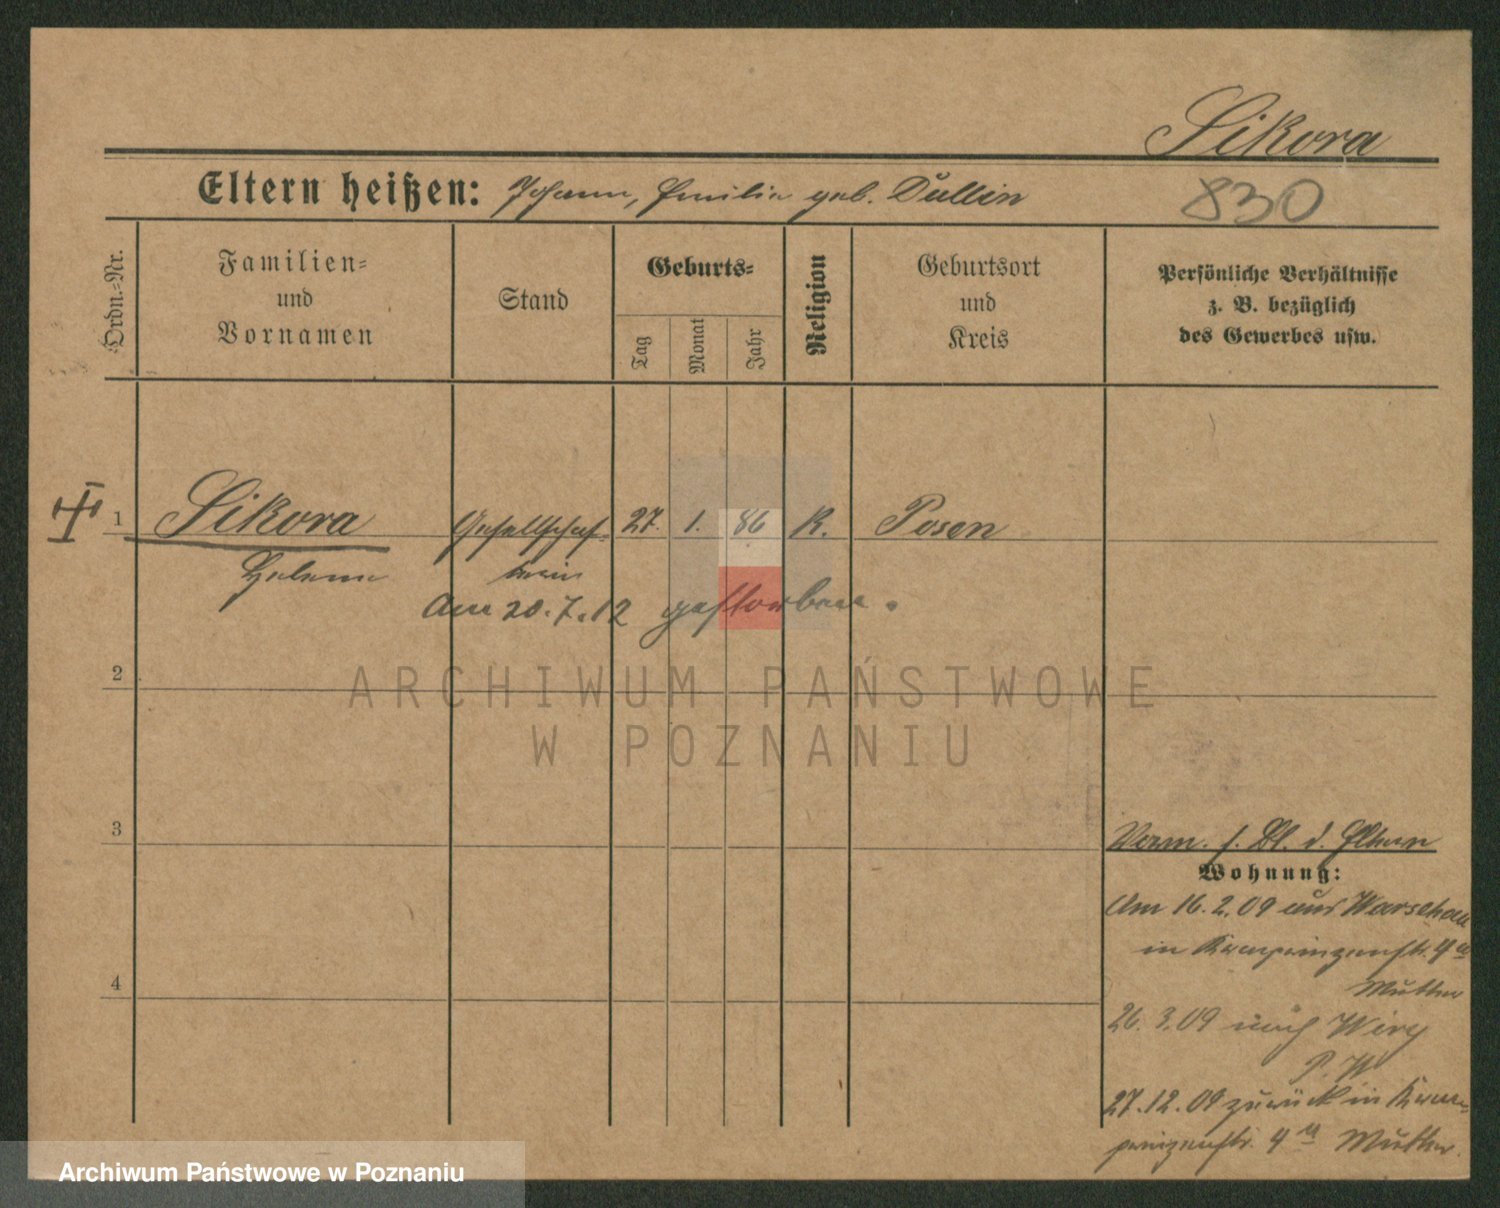 Sikora
Eltern heißen: Johann, Emilie geb. Dullin
830
Ordn.=Nr.
Familien=
und
Vornamen
Stand
Geburts=
Tag
Monat
Jahr
Religion
Geburtsort
und
Kreis
Persönliche Verhältnisse
z. B. bezüglich
des Gewerbes usw.
1 Sikora Gesellschaf= 27. 1. 86 K. Posen
Helene terin
Am 20.7.12 gestorben.
2
ARCHIWUM PAŃSTWOWE
W POZNANIU
3
Vorm. s. Bl. d. Eltern
Wohnung:
Am 16.2.09 aus Warschau
in Kronprinzenstr. 4
Mutter
26.3.09 nach
P. W
4
27.12.09 zurück in Kron=
prinzenstr. 4 Mutter.
Archiwum Państwowe w Poznaniu